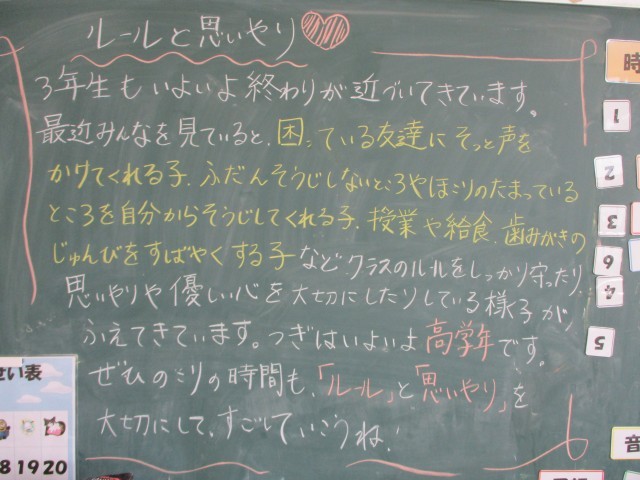 ルールと思いやり
3年生もいよいよ終わりが近づいてきています。
最近みんなを見ていると、困っている友達にそっと声を
かけてくれる子、ふだんそうじしないところやほこりのたまっている
ところを自分からそうじしてくれる子、授業や給食、歯みがきの
じゅんびをすばやくする子などクラスのルールをしっかり守ったり、
思いやりや優しい心を大切にしたりしている様子が
ふえてきています。つぎはいよいよ高学年です。
ぜひのこりの時間も、「ルール」と「思いやり」を
大切にして、すごしていこうね!
時
1
2
3
6
4
5
音
せい表
8 19 20